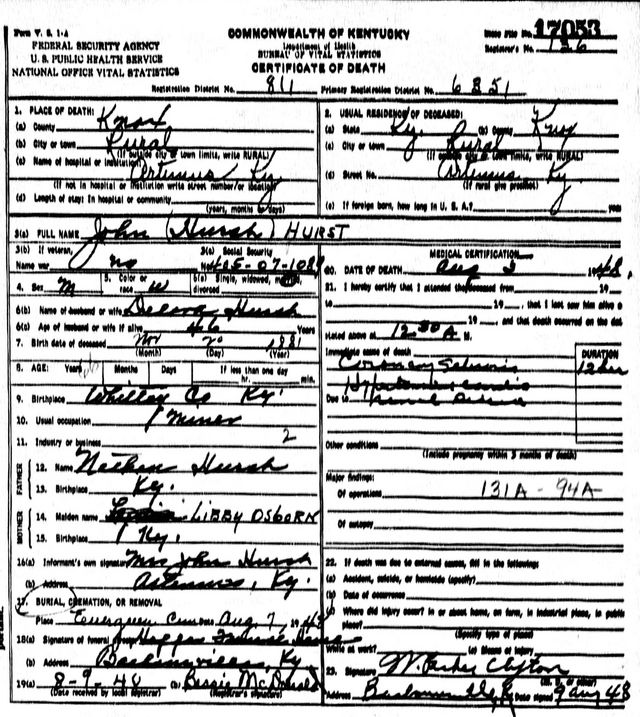 Form V. S. 1-A
COMMONWEALTH OF KENTUCKY
17053
FEDERAL SECURITY AGENCY
Department of Health
Registrar's No. 126
U. S. PUBLIC HEALTH SERVICE
BUREAU OF VITAL STATISTICS
NATIONAL OFFICE VITAL STATISTICS
CERTIFICATE OF DEATH
Registration District No. 811 Primary Registration District No. 6851
1. PLACE OF DEATH:
(a) County Knox
(b) City or town Rural
(If outside city or town limits, write RURAL)
(c) Name of hospital or institution: Artemus Ky
(If not in hospital or institution write street number or location)
(d) Length of stay: In hospital or community
(years, months or days)
2. USUAL RESIDENCE OF DECEASED:
(a) State Ky. (b) County Knox
(c) City or town Rural
(If outside city or town limits, write RURAL)
(d) Street No. Artemus Ky.
(If rural give precinct)
(e) If foreign born, how long in U. S. A.? years
3(a) FULL NAME John (Hursh) HURST
3(b) If veteran, Name war no
3(c) Social Security No. 405-07-108
4. Sex M 5. Color or race W 6(a) Single, widowed, married, divorced
6(b) Name of husband or wife Hursh
6(c) Age of husband or wife if alive 46 Years
7. Birth date of deceased Nov 20 1881
(Month) (Day) (Year)
8. AGE: Years 66 Months Days If less than one day
hr. min.
9. Birthplace Whitley Co Ky.
10. Usual occupation Miner
11. Industry or business 2
FATHER
12. Name Nathan Hursh
13. Birthplace Ky.
MOTHER
14. Maiden name LIBBY OSBORN
15. Birthplace Ky.
16(a) Informant's own signature Mrs John Hursh
(b) Address Artemus, Ky.
17. BURIAL, CREMATION, OR REMOVAL
Place Evergreen Cem Aug. 7 1948
18(a) Signature of funeral Hopper Funeral Home
(b) Address Barbourville, Ky
19(a) 8-9-48 (b) Bessie McDonald
(Date received by local Registrar) (Registrar's signature)
MEDICAL CERTIFICATION
20. DATE OF DEATH Aug 5 1948
21. I hereby certify that I attended the deceased from 19
to 19 , that I last saw him alive
19 , and that death occurred on the date
stated above at 12:30 A M.
Immediate cause of death DURATION
Coronary 12 hrs
Due to
Other conditions
(Include pregnancy within 3 months of death)
Major findings:
Of operations 131A - 94A
Of autopsy
22. If death was due to external causes, fill in the following:
(a) Accident, suicide, or homicide (specify)
(b) Date of occurrence
(c) Where did injury occur? In or about home, on farm, in industrial place, in public
place?
(Specify type of place)
While at work? (e) Means of injury
23. Signature W. Parker Clifton
(M. D. or other)
Address Date signed 9 Aug 48